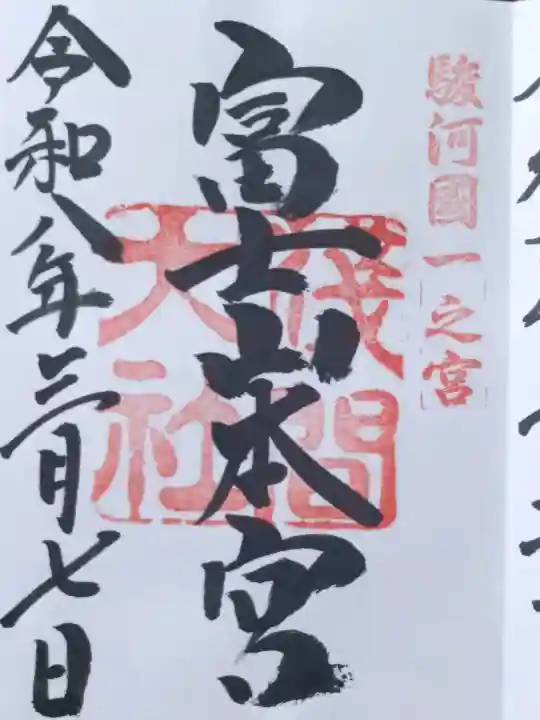 駿河國一之宮
富士山本宮
淺間
大社
令和八年三月七日